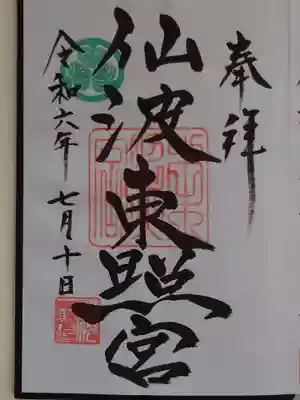 奉拝
仙波東照宮
令和六年 七月十日